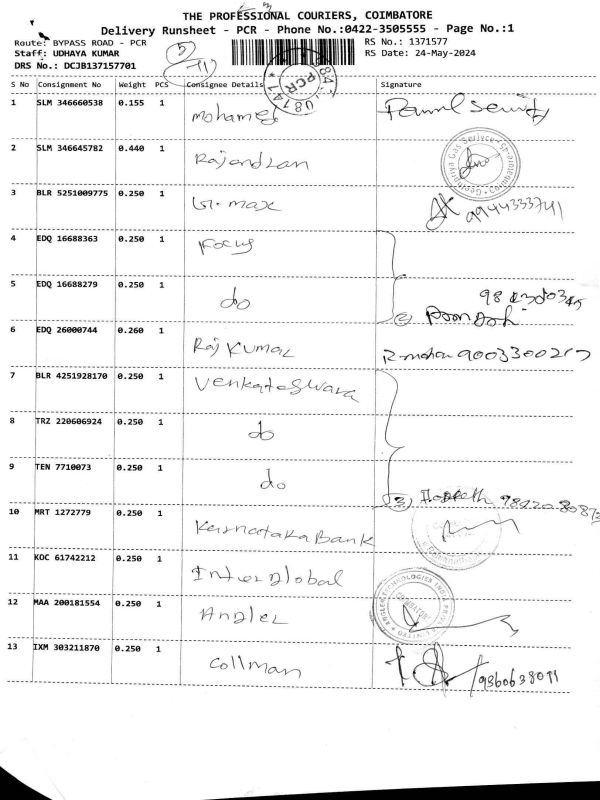 THE PROFESSIONAL COURIERS, COIMBATORE
Delivery Runsheet - PCR - Phone No.:0422-3505555 - Page No.:1
Route: BYPASS ROAD - PCR RS No.: 1371577
Staff: UDHAYA KUMAR RS Date: 24-May-2024
DRS No.: DCJB137157701
S No Consignment No Weight PCS Consignee Details Signature
1 SLM 346660538 0.155 1 Mohamed
2 SLM 346645782 0.440 1 Rajandran
3 BLR 5251009775 0.250 1 G.max 9944333741
4 EDQ 16688363 0.250 1 Focus
5 EDQ 16688279 0.250 1 do
6 EDQ 26000744 0.260 1 Raj Kumar
7 BLR 4251928170 0.250 1 Venkateswara
8 TRZ 220606924 0.250 1 do
9 TEN 7710073 0.250 1 do
10 MRT 1272779 0.250 1 Karnataka Bank
11 KOC 61742212 0.250 1 Interglobal
12 MAA 200181554 0.250 1 Angler
13 IXM 303211870 0.250 1 Collman 9360638091